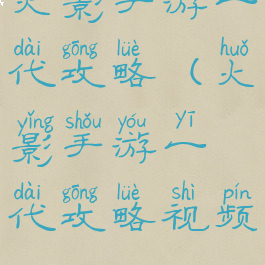 火影手游一
dài gōng lüè huǒ
代攻略（火
yǐng shǒu yóu yī
影手游一
dài gōng lüè shì pín
代攻略视频